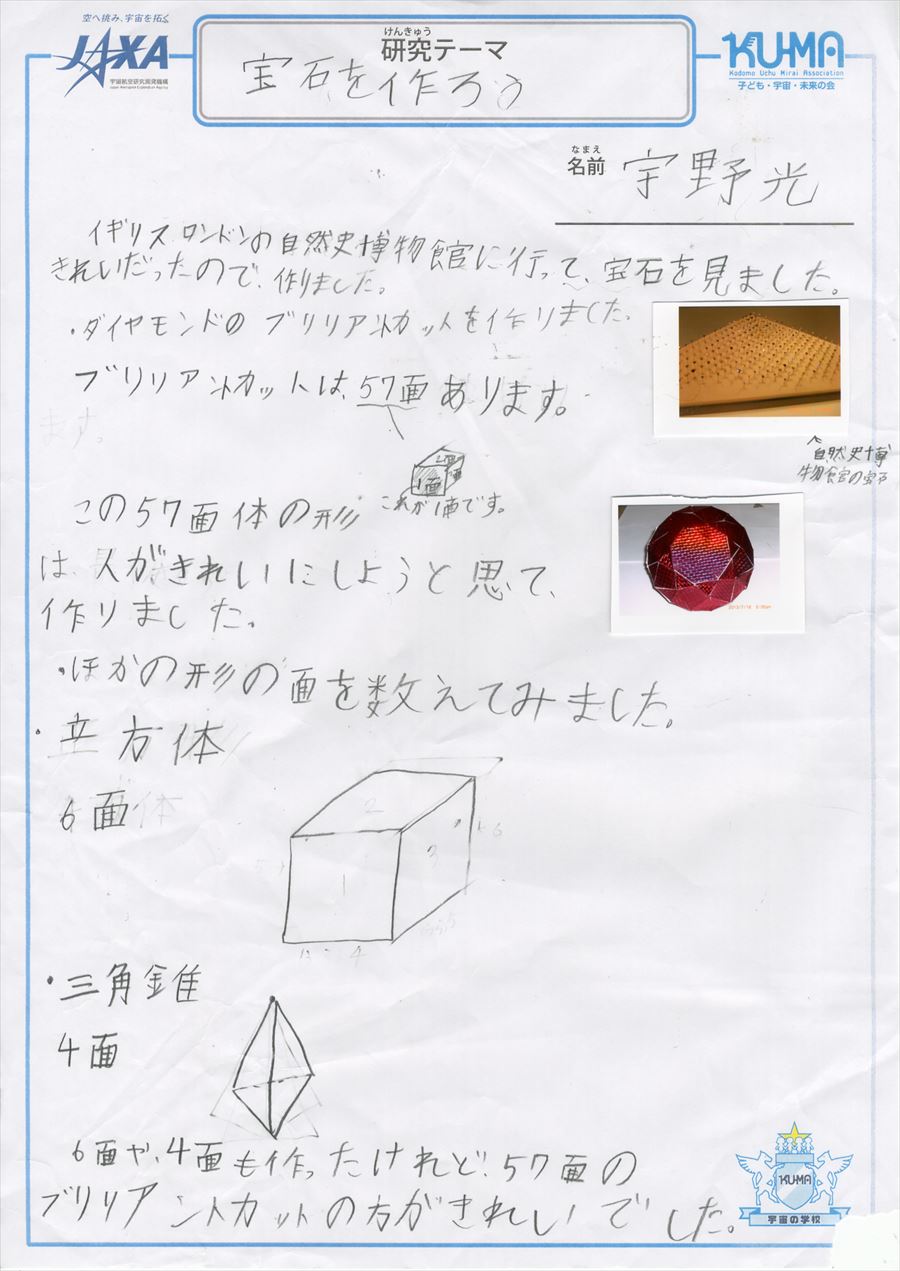 空へ挑み、宇宙を拓く
JAXA
宇宙航空研究開発機構
Japan Aerospace Exploration Agency
けんきゅう
研究テーマ
宝石を作ろう
KU-MA
Kodomo Uchu Mirai Association
子ども・宇宙・未来の会
なまえ
名前 宇野光
イギリスロンドンの自然史博物館に行って、宝石を見ました。
きれいだったので、作りました。
・ダイヤモンドのブリリアントカットを作りました。
ブリリアントカットは、57面あります。
ます。
自然史博
物館の宝石
2面
1面
これが1面です。
この57面体の形
は、人がきれいにしようと思て、
作りました。
2013/7/18
・ほかの形の面を数えてみました。
・立方体
6面
体
2
6
1
3
5
4
・三角錐
4面
6面や、4面も作ったけれど、57面の
ブリリアントカットの方がきれいでした。
KU-MA
宇宙の学校